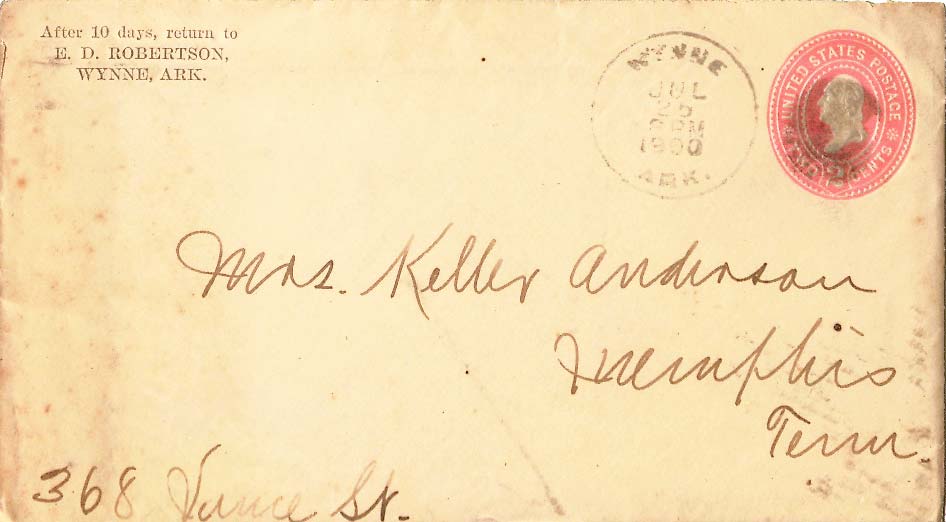 After 10 days, return to
E. D. ROBERTSON,
WYNNE, ARK.
WYNNE
JUL
25
PM
1900
ARK.
UNITED STATES POSTAGE
TWO CENTS
Mrs. Keller Anderson
Memphis
Tenn.
368 Vance St.